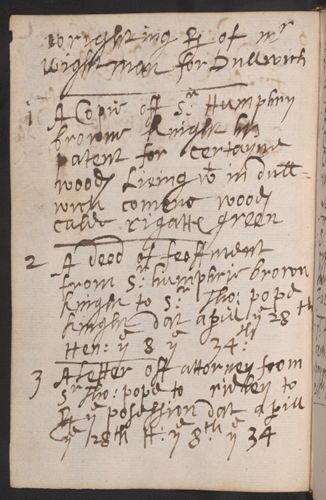 wrighting of mr
wightman for Dullwich
1 A Copie off Sr Humphry
browne Knight his
patent for certayne
woods Living in dull=
wich comens woods
calde rigatts green
2 A deed of feoffment
from Sr humphrie brown
Knight to Sr Tho: pope
Knight dat apill ye 28th
Hen: ye 8 ye 34:
3 A letter off attorney from
Sr Tho: pope to to
posession dat apill
ye 28th H: ye 8th ye 34